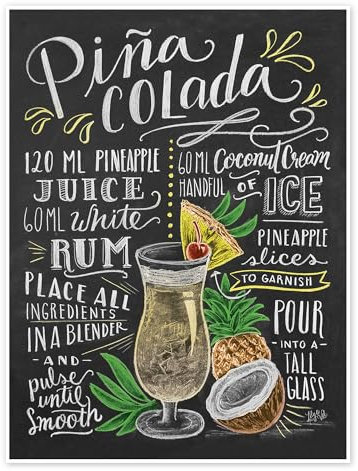 Piña
COLADA
120 ML PINEAPPLE
JUICE
60 ML White
RUM
PLACE ALL
INGREDIENTS
IN A BLENDER
- AND -
pulse
until
Smooth
60 ML Coconut Cream
HANDFUL OF
ICE
PINEAPPLE
slices
TO GARNISH
POUR
- INTO A -
TALL
GLASS